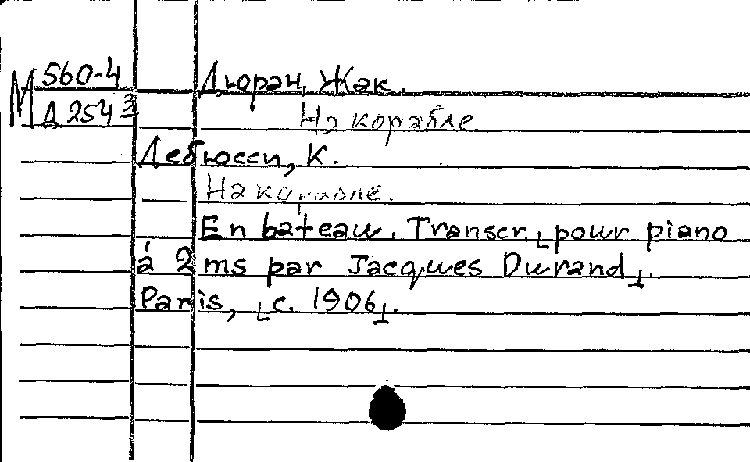 М 560-4 Дюран, Жак.
Д 254³ На корабле.
Дебюсси, К.
На корабле.
En bateau. Transcr. [pour piano
à 2 ms par Jacques Durand].
Paris, [c. 1906].